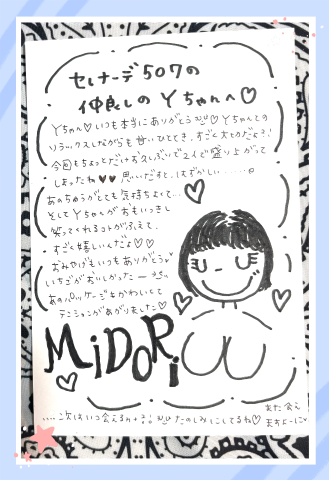 セレナーデ507の
仲良しの Yちゃんへ♡
Yちゃん♡いつも本当にありがとう♡Yちゃんとの
リラックスしながらも甘いひととき、すごく大切だよ♪
今回もちょっとだけお久しぶりで2人で盛り上がって
しまったね♥♥ 思いだすと…はずかしい……。
あのちゅうがとても気持ちよくて…
そしてYちゃんがおもいっきし
笑ってくれるコトがふえて、
すごく嬉しいんだよ♡♡
おみやげもいつもありがとう♡
いちごがおいしかったー
あのパッケージもかわいくて
テンションがあがりました♡
MiDORi
....次はいつ会えるか たのしみにしてるね♡
また会え
ますよーに♡